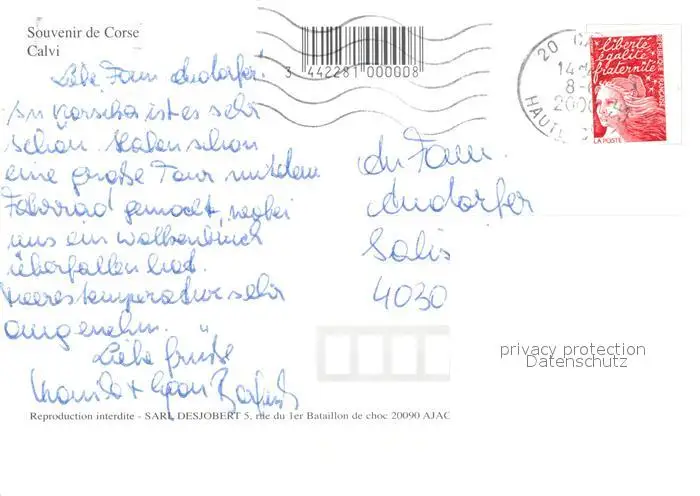 Souvenir de Corse
Calvi
3 442281 000008
20
14
8
200
HAUTE
liberté
égalité
fraternité
LA POSTE
Liebe Frau
In Korsika ist es sehr
schön. Haben schon
eine große Tour mit dem
Fahrrad gemacht, wobei
uns ein Wolkenbruch
überfallen hat.
Meerestemperatur sehr
angenehm.
Liebe Grüße
An Frau
Salis
4030
privacy protection
Datenschutz
Reproduction interdite - SARL DESJOBERT 5, rue du 1er Bataillon de choc 20090 AJAC